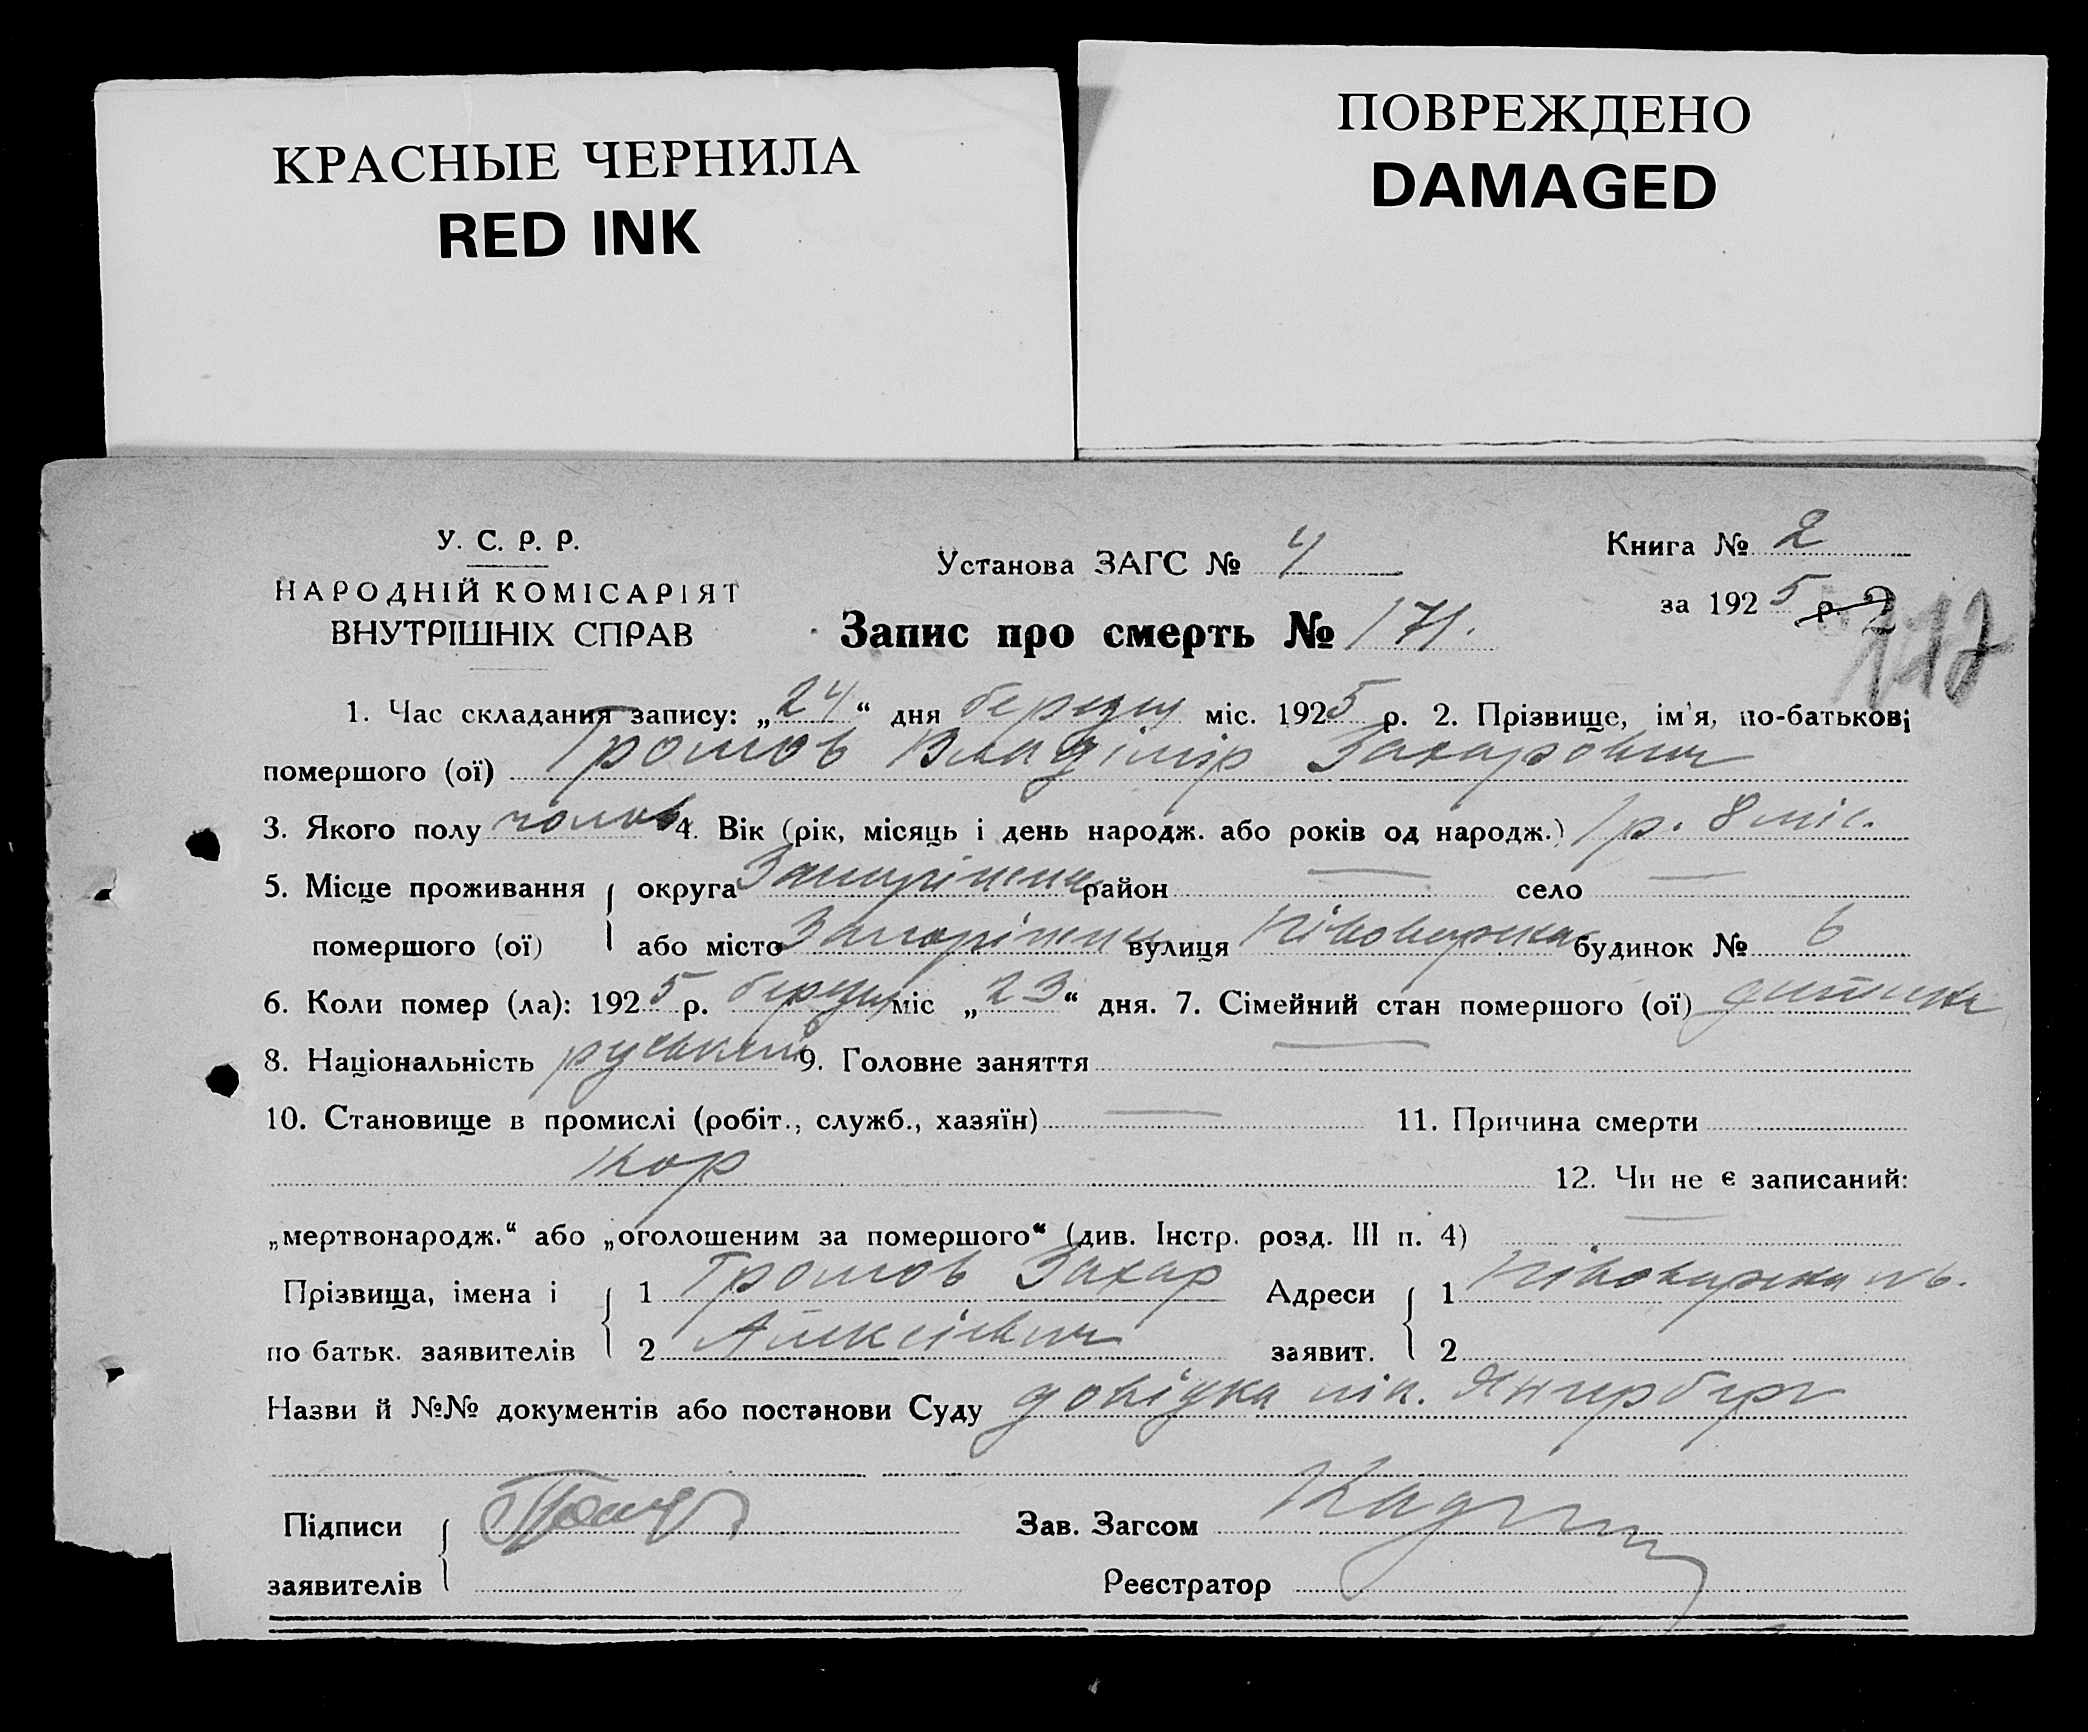 КРАСНЫЕ ЧЕРНИЛА
RED INK
ПОВРЕЖДЕНО
DAMAGED
У. С. Р. Р.
НАРОДНІЙ КОМІСАРІЯТ
ВНУТРІШНІХ СПРАВ
Установа ЗАГС № 4
Запис про смерть № 171.
Книга № 2
за 1925 р. 2
117
1. Час складання запису: „24“ дня березня міс. 1925 р. 2. Прізвище, ім'я, по-батькові
помершого (ої) Громов Владімір Захарович
3. Якого полу чолов 4. Вік (рік, місяць і день народж. або років од народж.) 1 р. 8 міс.
5. Місце проживання округа Запоріжжя район — село —
помершого (ої) або місто Запоріжжя вулиця будинок № 6
6. Коли помер (ла): 1925 р. березня міс „23“ дня. 7. Сімейний стан помершого (ої) дитина
8. Національність руський 9. Головне заняття —
10. Становище в промислі (робіт., служб., хазяїн) — 11. Причина смерти
Кор
12. Чи не є записаний:
„мертвонародж.“ або „оголошеним за помершого“ (див. Інстр. розд. III п. 4) —
Прізвища, імена і 1 Громов Захар Адреси 1 № 6.
по батьк. заявителів 2 Алексієвич заявит. 2
Назви й №№ документів або постанови Суду довідка лік.
Підписи Зав. Загсом
заявителів Реєстратор